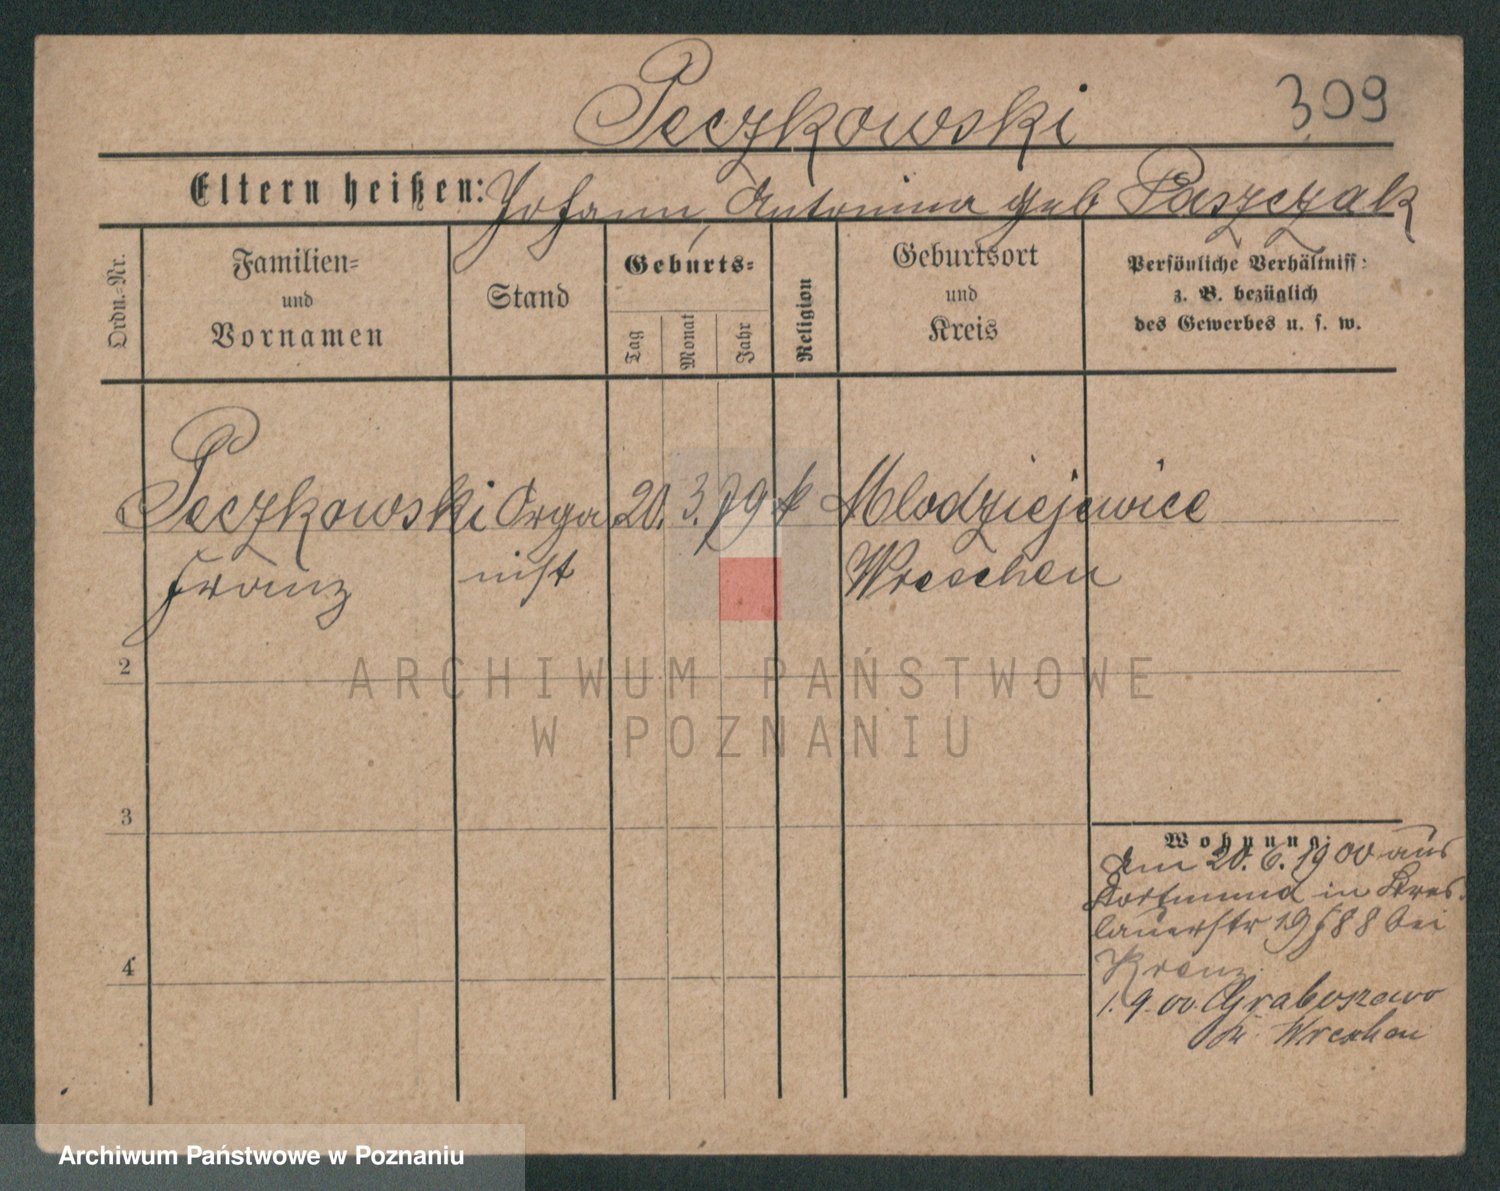 Peczkowski
309
Eltern heißen: Johann, Antonina geb Paszczak
Ordn.-Nr.
Familien-
und
Vornamen
Stand
Geburts-
Tag
Monat
Jahr
Religion
Geburtsort
und
Kreis
Persönliche Verhältniss:
z. B. bezüglich
des Gewerbes u. s. w.
Peczkowski Orga 20. 3. 79 k Mlodziejewice
Franz nist Wreschen
2
3
4
Wohnung:
Am 20. 6. 1900 aus
Dortmund in Bres-
lauerstr 19/88 bei
Kranz
1. 9. 00. Graboszewo
Kr. Wreschen
ARCHIWUM PAŃSTWOWE
W POZNANIU
Archiwum Państwowe w Poznaniu